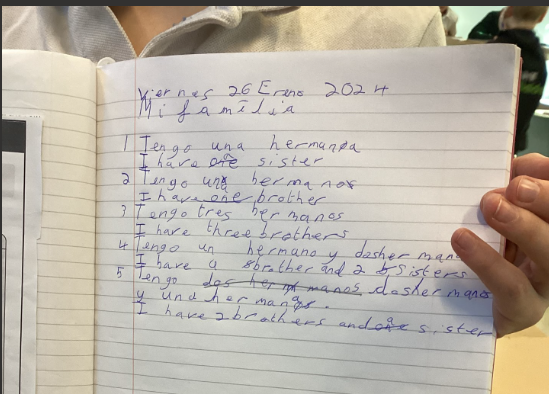 Viernes 26 Enero 2024
Mi familia
1 Tengo una hermana
I have a sister
2 Tengo un hermano
I have one brother
3 Tengo tres hermanos
I have three brothers
4 Tengo un hermano y dos herman
I have a brother and 2 sisters
5 Tengo dos hermanos dos hermanos
y una hermana.
I have 2 brothers and a sister